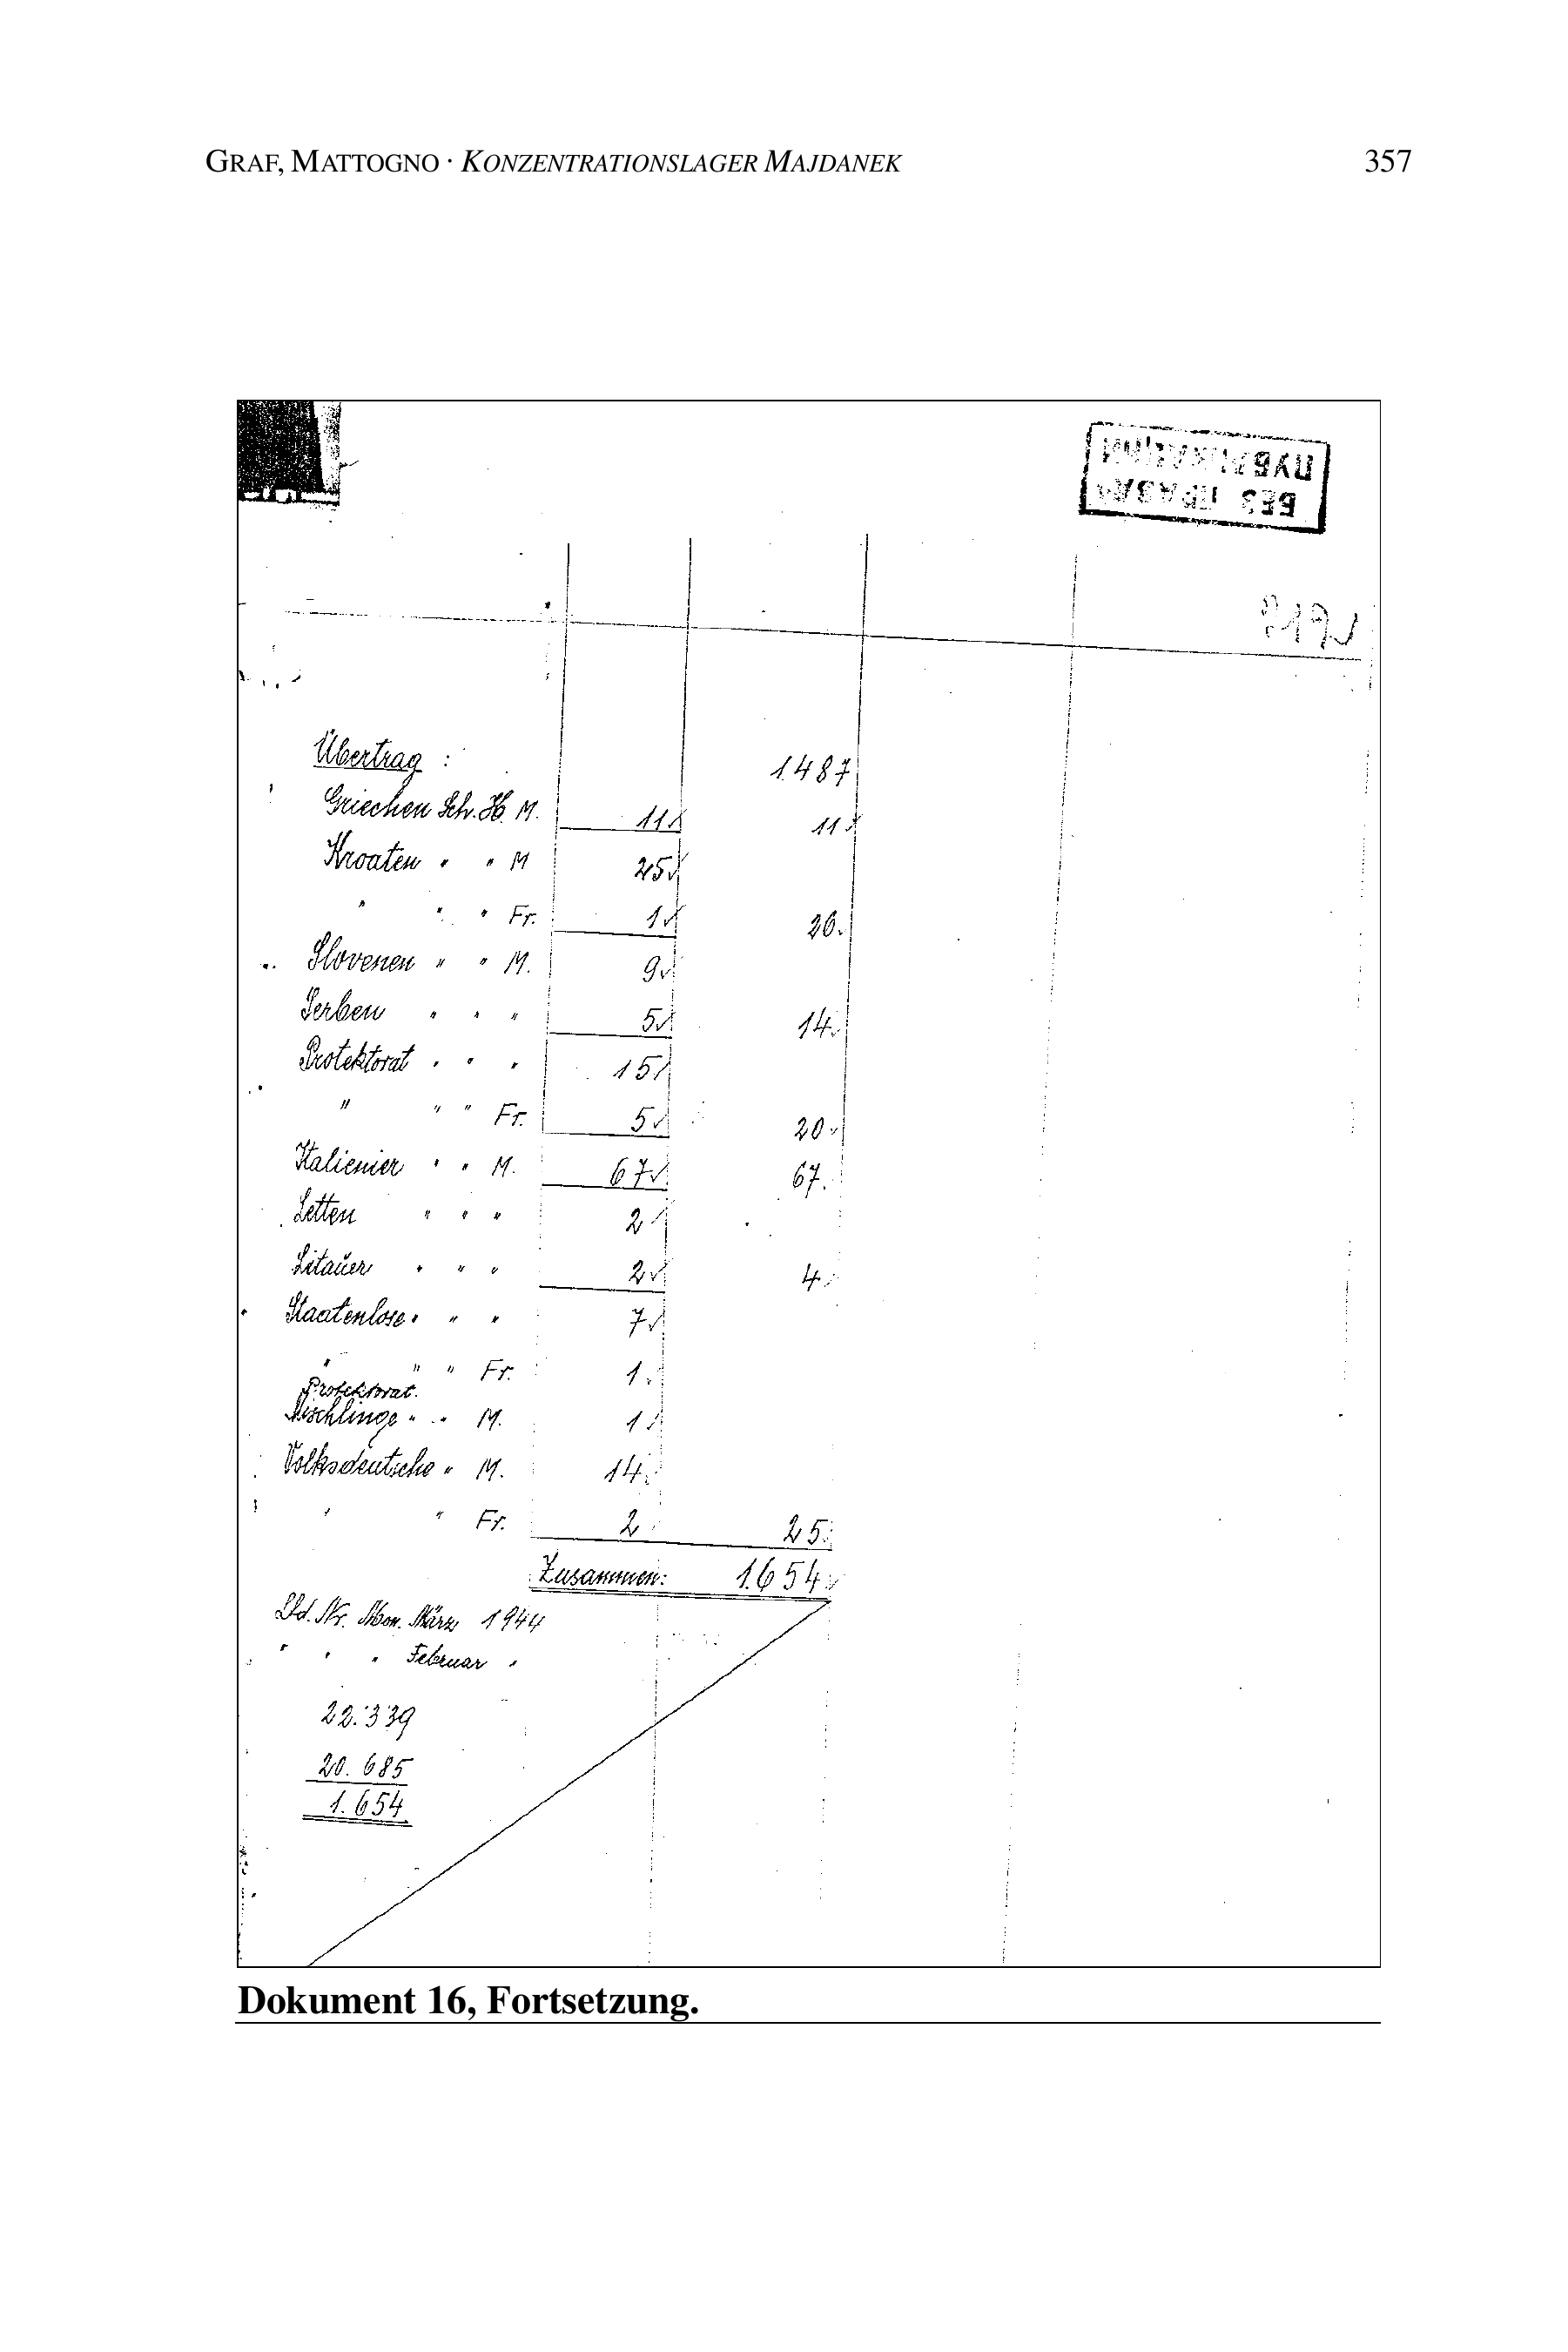 GRAF, MATTOGNO · KONZENTRATIONSLAGER MAJDANEK 357
БЕЗ ПРАВА
ПУБЛИКАЦИИ
Übertrag : 1487
Griechen Sch. H. M. 11 11
Kroaten " " M 25
" " " Fr. 1 26.
Slovenen " " M. 9
Serben " " " 5 14.
Protektorat " " " 15
" " " Fr. 5 20
Italienier " " M. 67 67.
Letten " " " 2
Litauer " " " 2 4
Staatenlose " " " 7
" " " Fr. 1
Protektorat.
Mischlinge " " M. 1
Volksdeutsche " M. 14
" " Fr. 2 25
Zusammen: 1.654
Lfd. Nr. Mon. März 1944
" " " Februar "
22.339
20.685
1.654
Dokument 16, Fortsetzung.